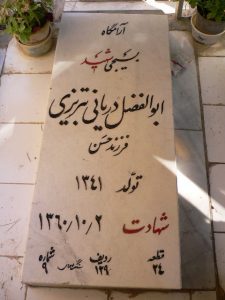 آرامگاه
بسیجی شهید
ابوالفضل دریانی تبریزی
فرزند حسن
تولد ۱۳۴۱
شهادت ۱۳۶۰/۱۰/۲
قطعه ۲۴ ردیف ۱۲۹ شماره ۹